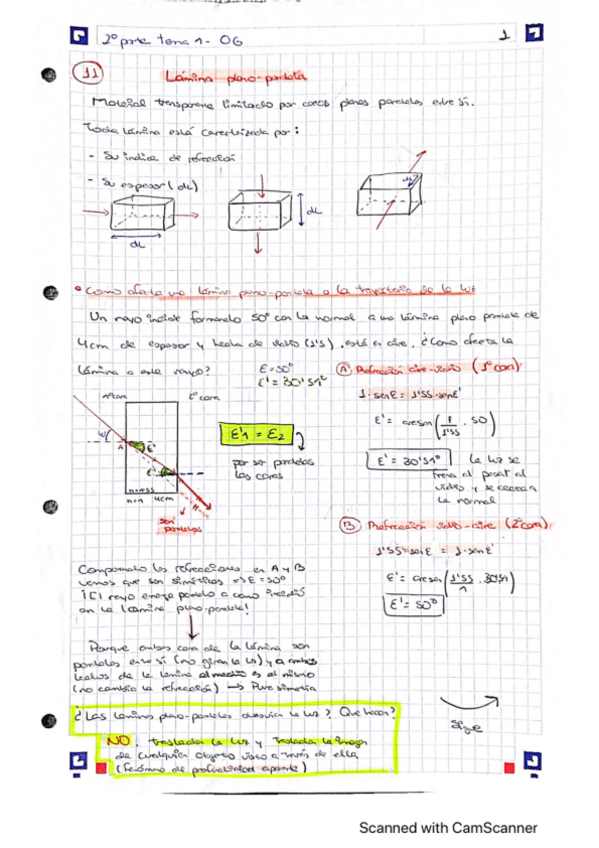 2º parte tema 1 - OG
1
11
Lámina plano-paralela
Material transparente limitado por caras planas paralelas entre sí.
Toda lámina está caracterizada por:
- Su índice de refracción
- Su espesor (dL)
dL
dL
dL
• Como afecta una lámina plano-paralela a la trayectoria de la luz
Un rayo incide formando 50º con la normal a una lámina plano paralela de
4cm de espesor y hecha de vidrio (1'5), está en aire. ¿Como afecta la
lámina a este rayo?
ε = 50º
ε' = 30'51º
1º cara
2º cara
A
ε'
ε'
n=1
4cm
son
paralelos
ε'1 = ε2
por ser paralelas
las caras
A Refracción aire-vidrio (1º cara)
1·senε = 1'55·senε'
ε' = arcsen(1/1'55 · 50)
ε' = 30'51º
La luz se
frena al pasar al
vidrio y se acerca
la normal
B Refracción vidrio-aire (2º cara)
1'55·senε = 1·senε'
ε' = arcsen(1'55/1 · 30'51)
ε' = 50º
Comparando las refracciones en A y B
vemos que son simétricas => ε = 50º
¡El rayo emerge paralelo a como incidió
en la lámina plano-paralela!
Porque ambas caras de la lámina son
paralelas entre sí (no giran la luz) y a ambos
lados de la lámina el medio es el mismo
(no cambia la refracción) → Pura simetría
¿Las láminas plano-paralelas desvían la luz? ¿Que hacen?
NO, trasladan la luz y traslada la imagen
de cualquier objeto visto a través de ella
(fenómeno de profundidad aparente)
Sigue
Scanned with CamScanner